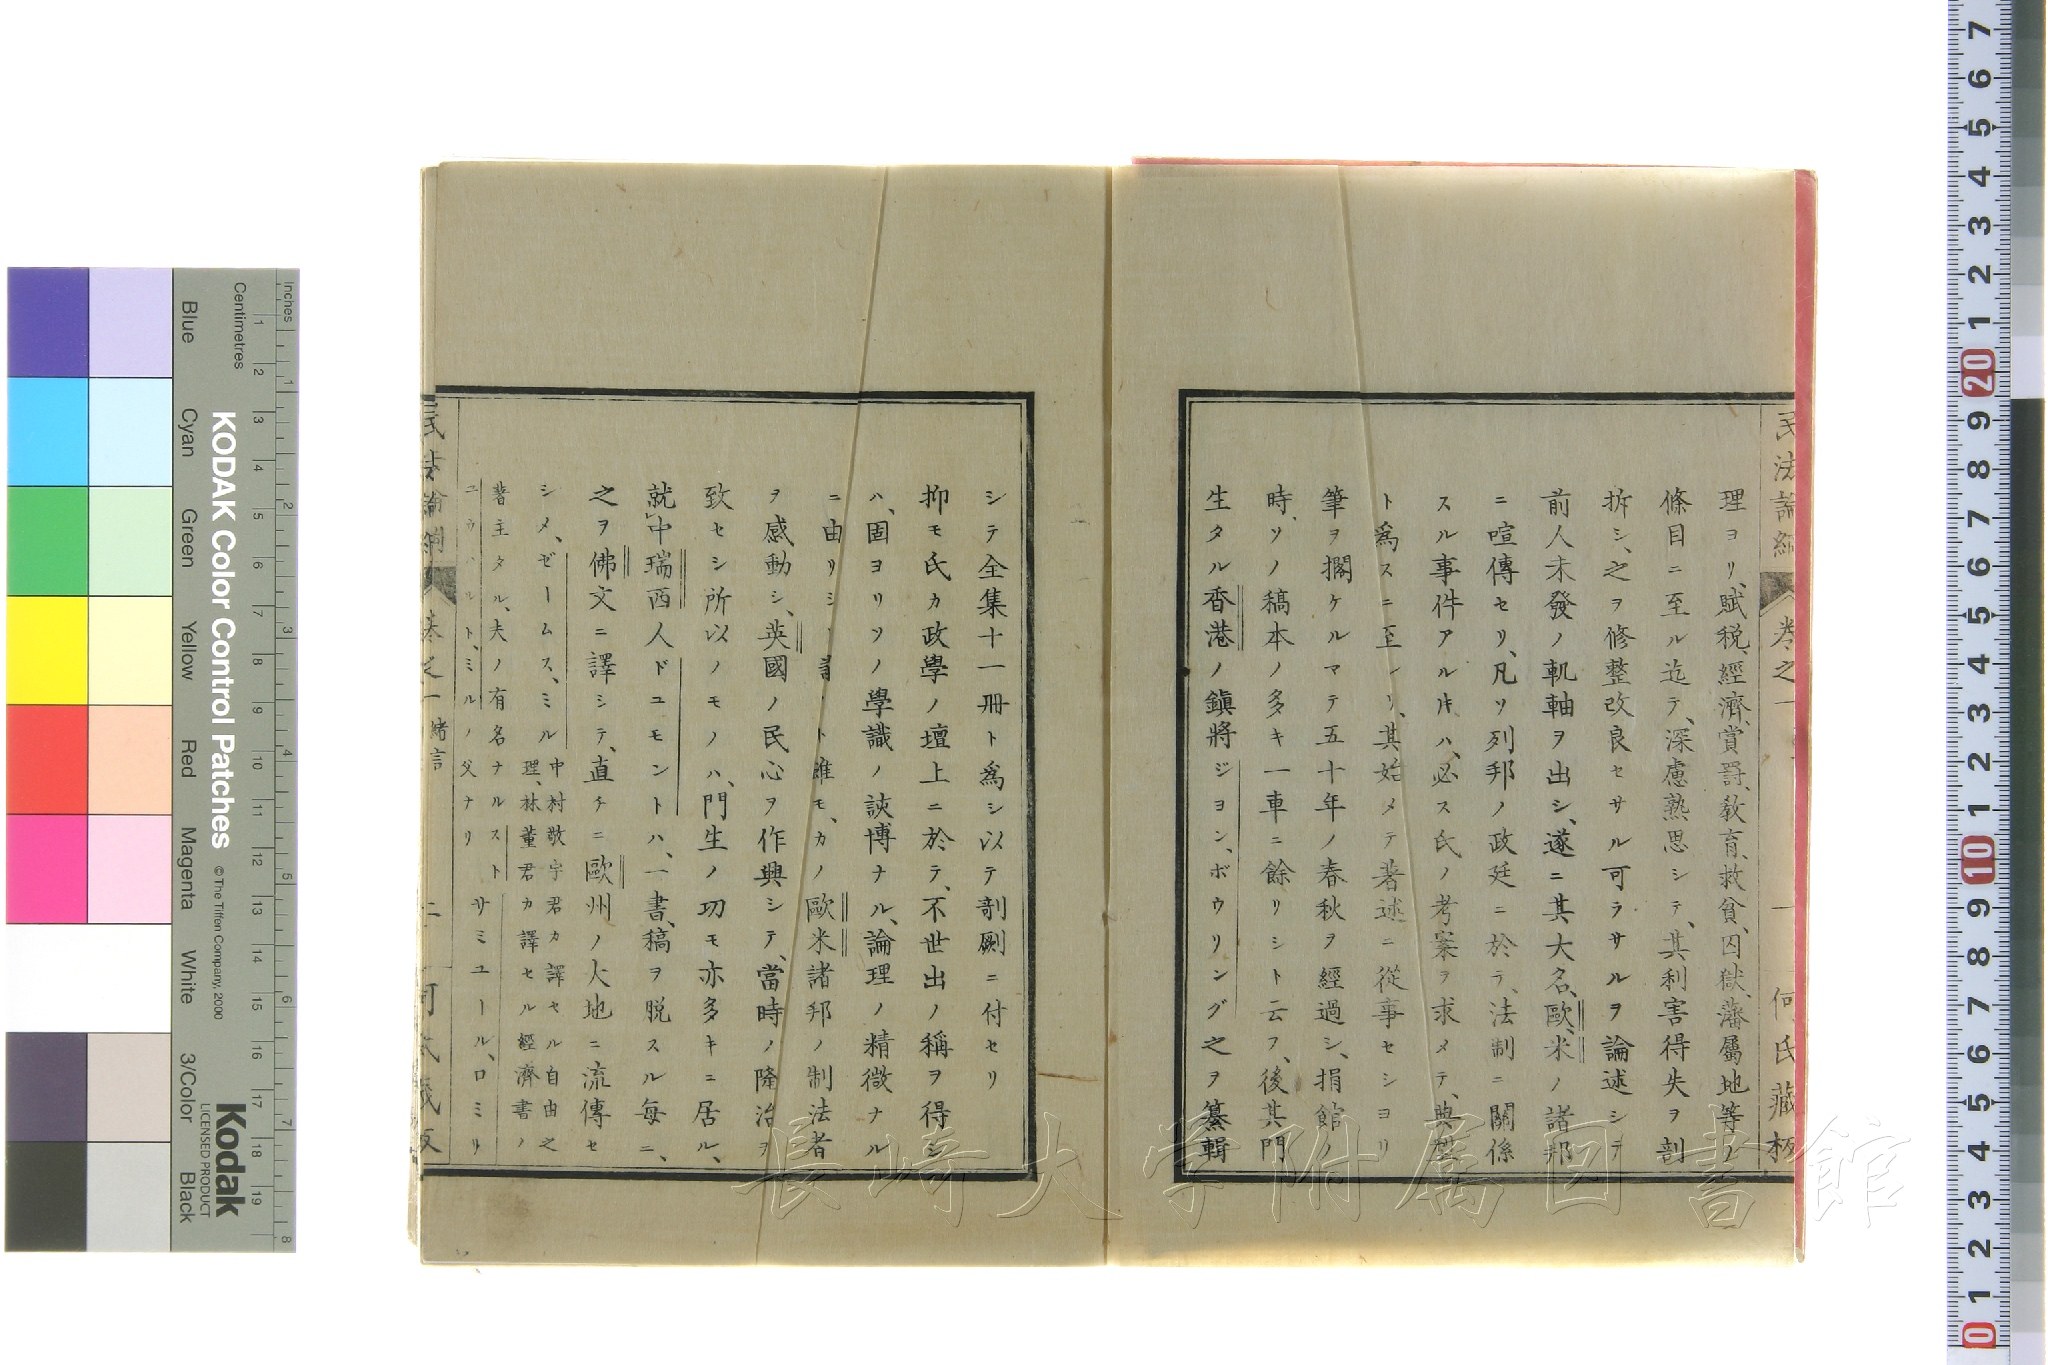 民法論綱 卷之一 一 何氏藏板
理ヨリ、賦税、經濟、賞罰、敎育、救貧、囚獄、藩屬地等ノ
條目ニ至ル迄テ、深慮熟思シテ、其利害得失ヲ剖
拆シ、之ヲ修整改良セサル可ラサルヲ論述シテ
前人未發ノ軌軸ヲ出シ、遂ニ其大名、歐、米ノ諸邦
ニ喧傳セリ、凡ソ列邦ノ政廷ニ於テ、法制ニ關係
スル事件アル片ハ、必ス氏ノ考案ヲ求メテ、典型
ト爲スニ至レリ、其始メテ著述ニ從事セシヨリ
筆ヲ擱ケルマテ五十年ノ春秋ヲ經過シ、捐館ノ
時、ソノ稿本ノ多キ一車ニ餘リシト云フ、後其門
生タル香港ノ鎭將ジヨン、ボウリング之ヲ纂輯
シテ全集十一冊ト爲シ以テ剞劂ニ付セリ
抑モ氏カ政學ノ壇上ニ於テ、不世出ノ稱ヲ得シ
ハ、固ヨリソノ學識ノ談博ナル、論理ノ精徴ナル
ニ由リシ ト雖モ、カノ歐米諸邦ノ制法者
ヲ感動シ、英國ノ民心ヲ作興シテ、當時ノ隆治ヲ
致セシ所以ノモノハ、門生ノ功モ亦多キニ居ル、
就中瑞西人ドユモントハ、一書、稿ヲ脱スル毎ニ、
之ヲ佛文ニ譯シテ、直チニ歐州ノ大地ニ流傳セ
シメ、ゼームス、ミル 中村敬宇君カ譯セル自由之
理、林董君カ譯セル經濟書ノ
著主タル、夫ノ有名ナルスト
ユワハルト、ミルノ父ナリ サミユール、ロミリ
民法論綱 卷之一 緒言 二 何氏藏板
KODAK Color Control Patches
© The Tiffen Company, 2000
Kodak
LICENSED PRODUCT
Inches
Centimetres
Blue
Cyan
Green
Yellow
Red
Magenta
White
3/Color
Black
長崎大学附属図書館